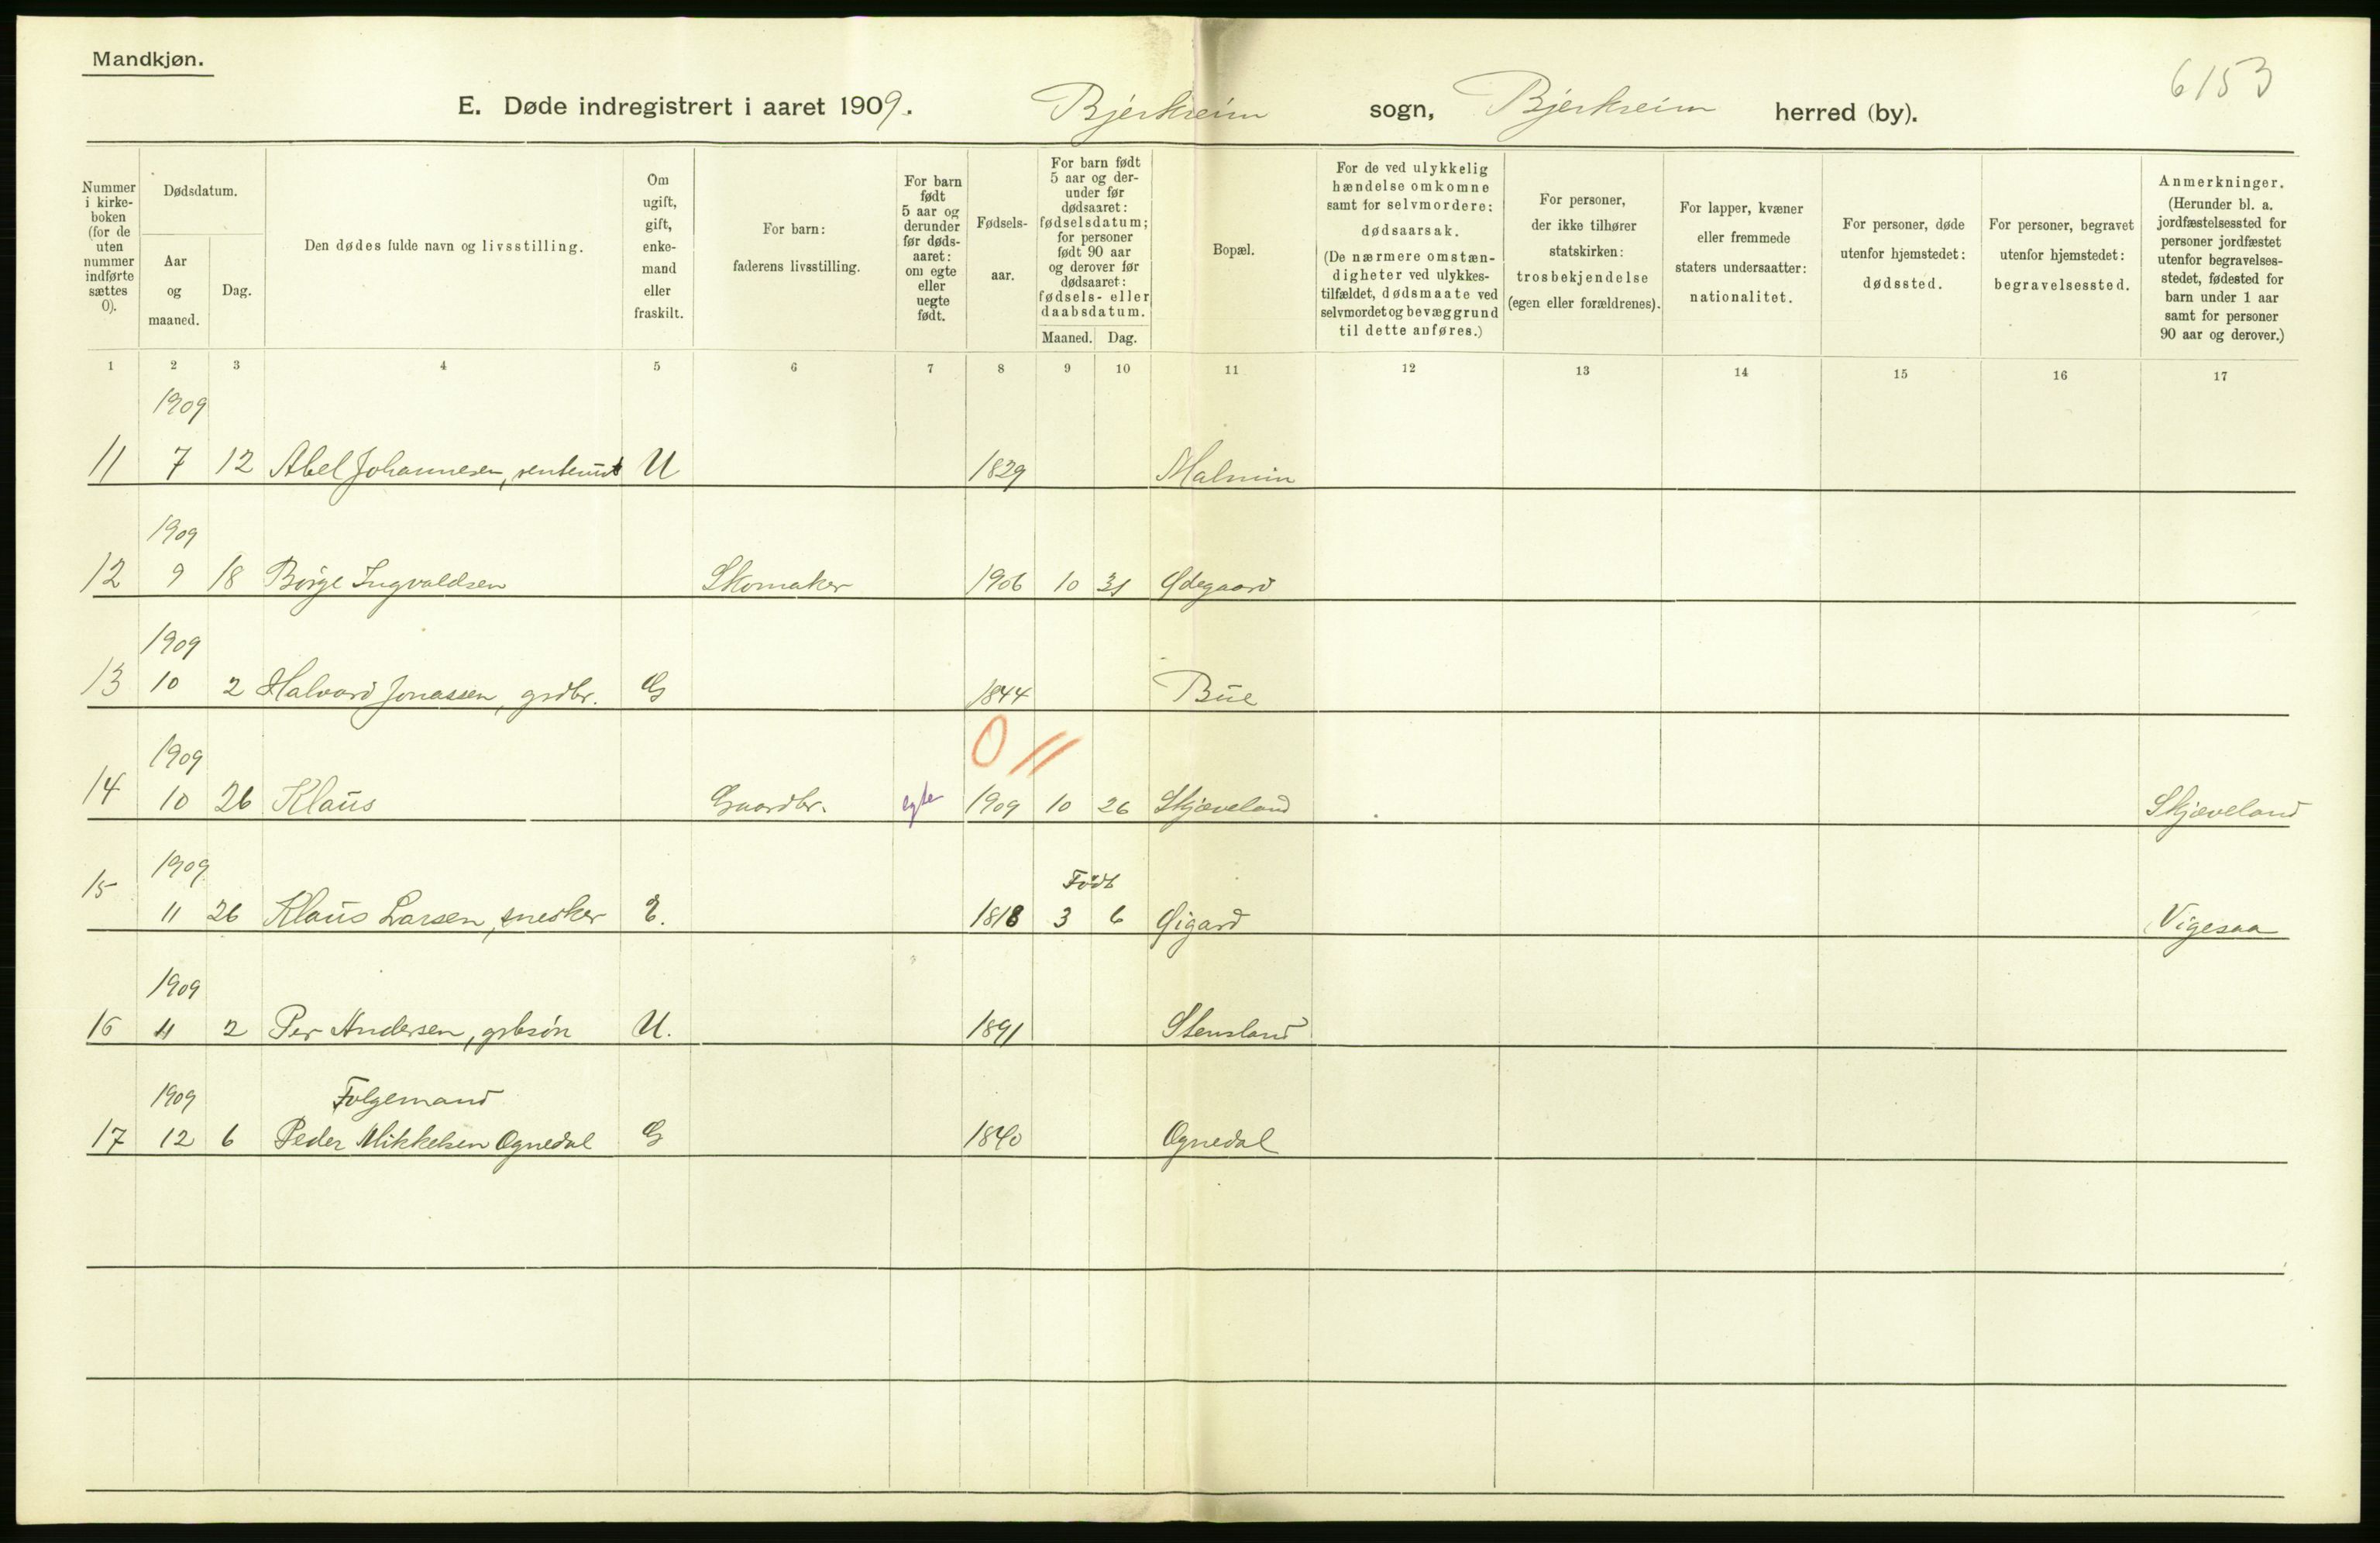 Mandkjøn.
6153
E. Døde indregistrert i aaret 1909. Bjerkreim sogn, Bjerkreim herred (by).
Nummer i kirke-boken (for de uten nummer indførte sættes 0).
Dødsdatum.
Aar og maaned.
Dag.
Den dødes fulde navn og livsstilling.
Om ugift, gift, enke-mand eller fraskilt.
For barn: faderens livsstilling.
For barn født 5 aar og derunder før døds-aaret: om egte eller uegte født.
Fødsels-aar.
For barn født 5 aar og der-under før dødsaaret: fødselsdatum; for personer født 90 aar og derover før dødsaaret: fødsels- eller daabsdatum.
Maaned. Dag.
Bopæl.
For de ved ulykkelig hændelse omkomne samt for selvmordere: dødsaarsak. (De nærmere omstæn-digheter ved ulykkes-tilfældet, dødsmaate ved selvmordet og bevæggrund til dette anføres.)
For personer, der ikke tilhører statskirken: trosbekjendelse (egen eller forældrenes).
For lapper, kvæner eller fremmede staters undersaatter: nationalitet.
For personer, døde utenfor hjemstedet: dødssted.
For personer, begravet utenfor hjemstedet: begravelsessted.
Anmerkninger. (Herunder bl. a. jordfæstelsessted for personer jordfæstet utenfor begravelses-stedet, fødested for barn under 1 aar samt for personer 90 aar og derover.)
1 2 3 4 5 6 7 8 9 10 11 12 13 14 15 16 17
1909
11 7 12 Abel Johannesen, U 1829 Malmin
1909
12 9 18 Børge Ingvaldsen Skomaker 1906 10 31 Ødegaard
1909
13 10 2 Halvard Jonassen, grdbr. G 1844 Bue
0 11
1909
14 10 26 Klaus Gaardbr. egte 1909 10 26 Skjæveland Skjæveland
1909 Født
15 11 26 Klaus Larsen, snekker E. 1818 3 6 Øigard Vigesaa
1909
16 11 2 Per Andersen, gbrsøn U. 1891 Stensland
1909 Folgemand
17 12 6 Peder Mikkelsen Ognedal G 1840 Ognedal